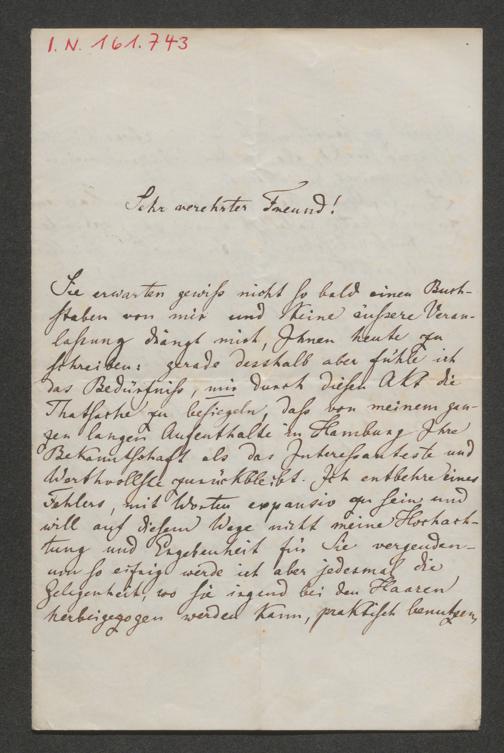 I. N. 161.743
Sehr verehrter Freund!
Sie erwarten gewiß nicht so bald einen Buch-
staben von mir und keine äußere Veran-
lassung drängt mich, Ihnen heute zu
schreiben: gerade desshalb aber fühle ich
das Bedürfniß, mir durch diesen Akt die
Thatsache zu besiegeln, daß von meinem gan-
zen langen Aufenthalte in Hamburg Ihre
Bekanntschaft als das Interessanteste und
Werthvollste zurückbleibt. Ich entbehre eines
Fehlers, mit Worten expansiv zu sein und
will auf diesem Wege nicht meine Hochach-
tung und Ergebenheit für Sie vergeuden –
um so eifrig werde ich aber jedesmal die
Gelegenheit, wo sie irgend bei den Haaren
herbeigezogen werden kann, praktisch benutzen,